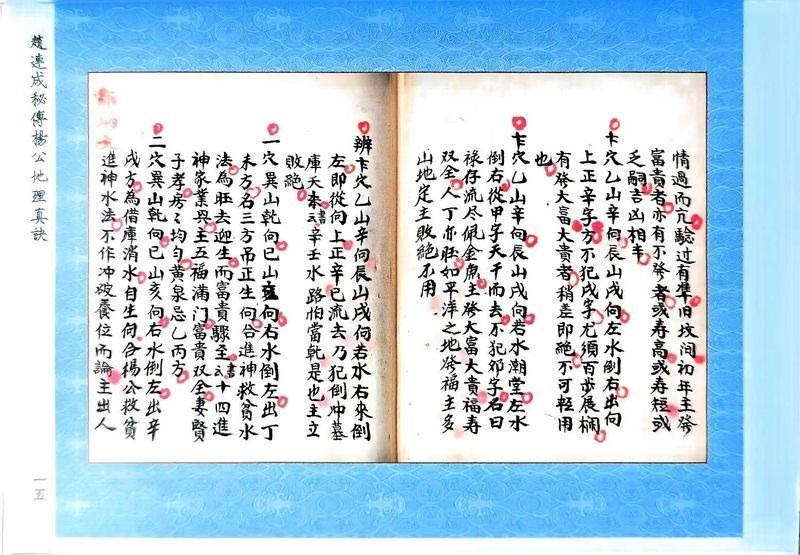 情過而亢驗过有隼旧坟润初年主發
富貴者亦有不發者或寿高或寿短或
乏嗣吉凶相半
卞穴乙山辛向辰山戌何左水倒右出向
上正辛字方不犯戌字尤須百步展欄
有發大富大貴者稍差即絕不可輕用
也
卞穴乙山辛向辰山戌向若水潮堂左水
倒右從甲字天干而去不犯卯字名曰
祿存流尽佩金魚主發大富大貴福寿
双全人丁亦旺如平洋之地發福主多
山地定主敗絕不用
辨卞穴乙山辛向辰山戌何若水右來倒
左即從向上正辛巳流去乃犯倒冲墓
庫天本云書辛壬水路怕當乾是也主立
敗絕
一穴巽山乾向巳山亥向右水倒左出丁
未方名三方吊正生向合進神救貧水
法為旺去迎生而富貴驟至之書十四進
神家業興主五福满门富貴双全妻賢
子孝房々均匀黄泉忌乙丙方
二穴巽山乾向巳山亥向右水倒左出辛
戌方為借庫消水自生向合楊公救貧
進神水法不作冲破養位而論主出人
趙連成秘傳楊公地理真訣
一五